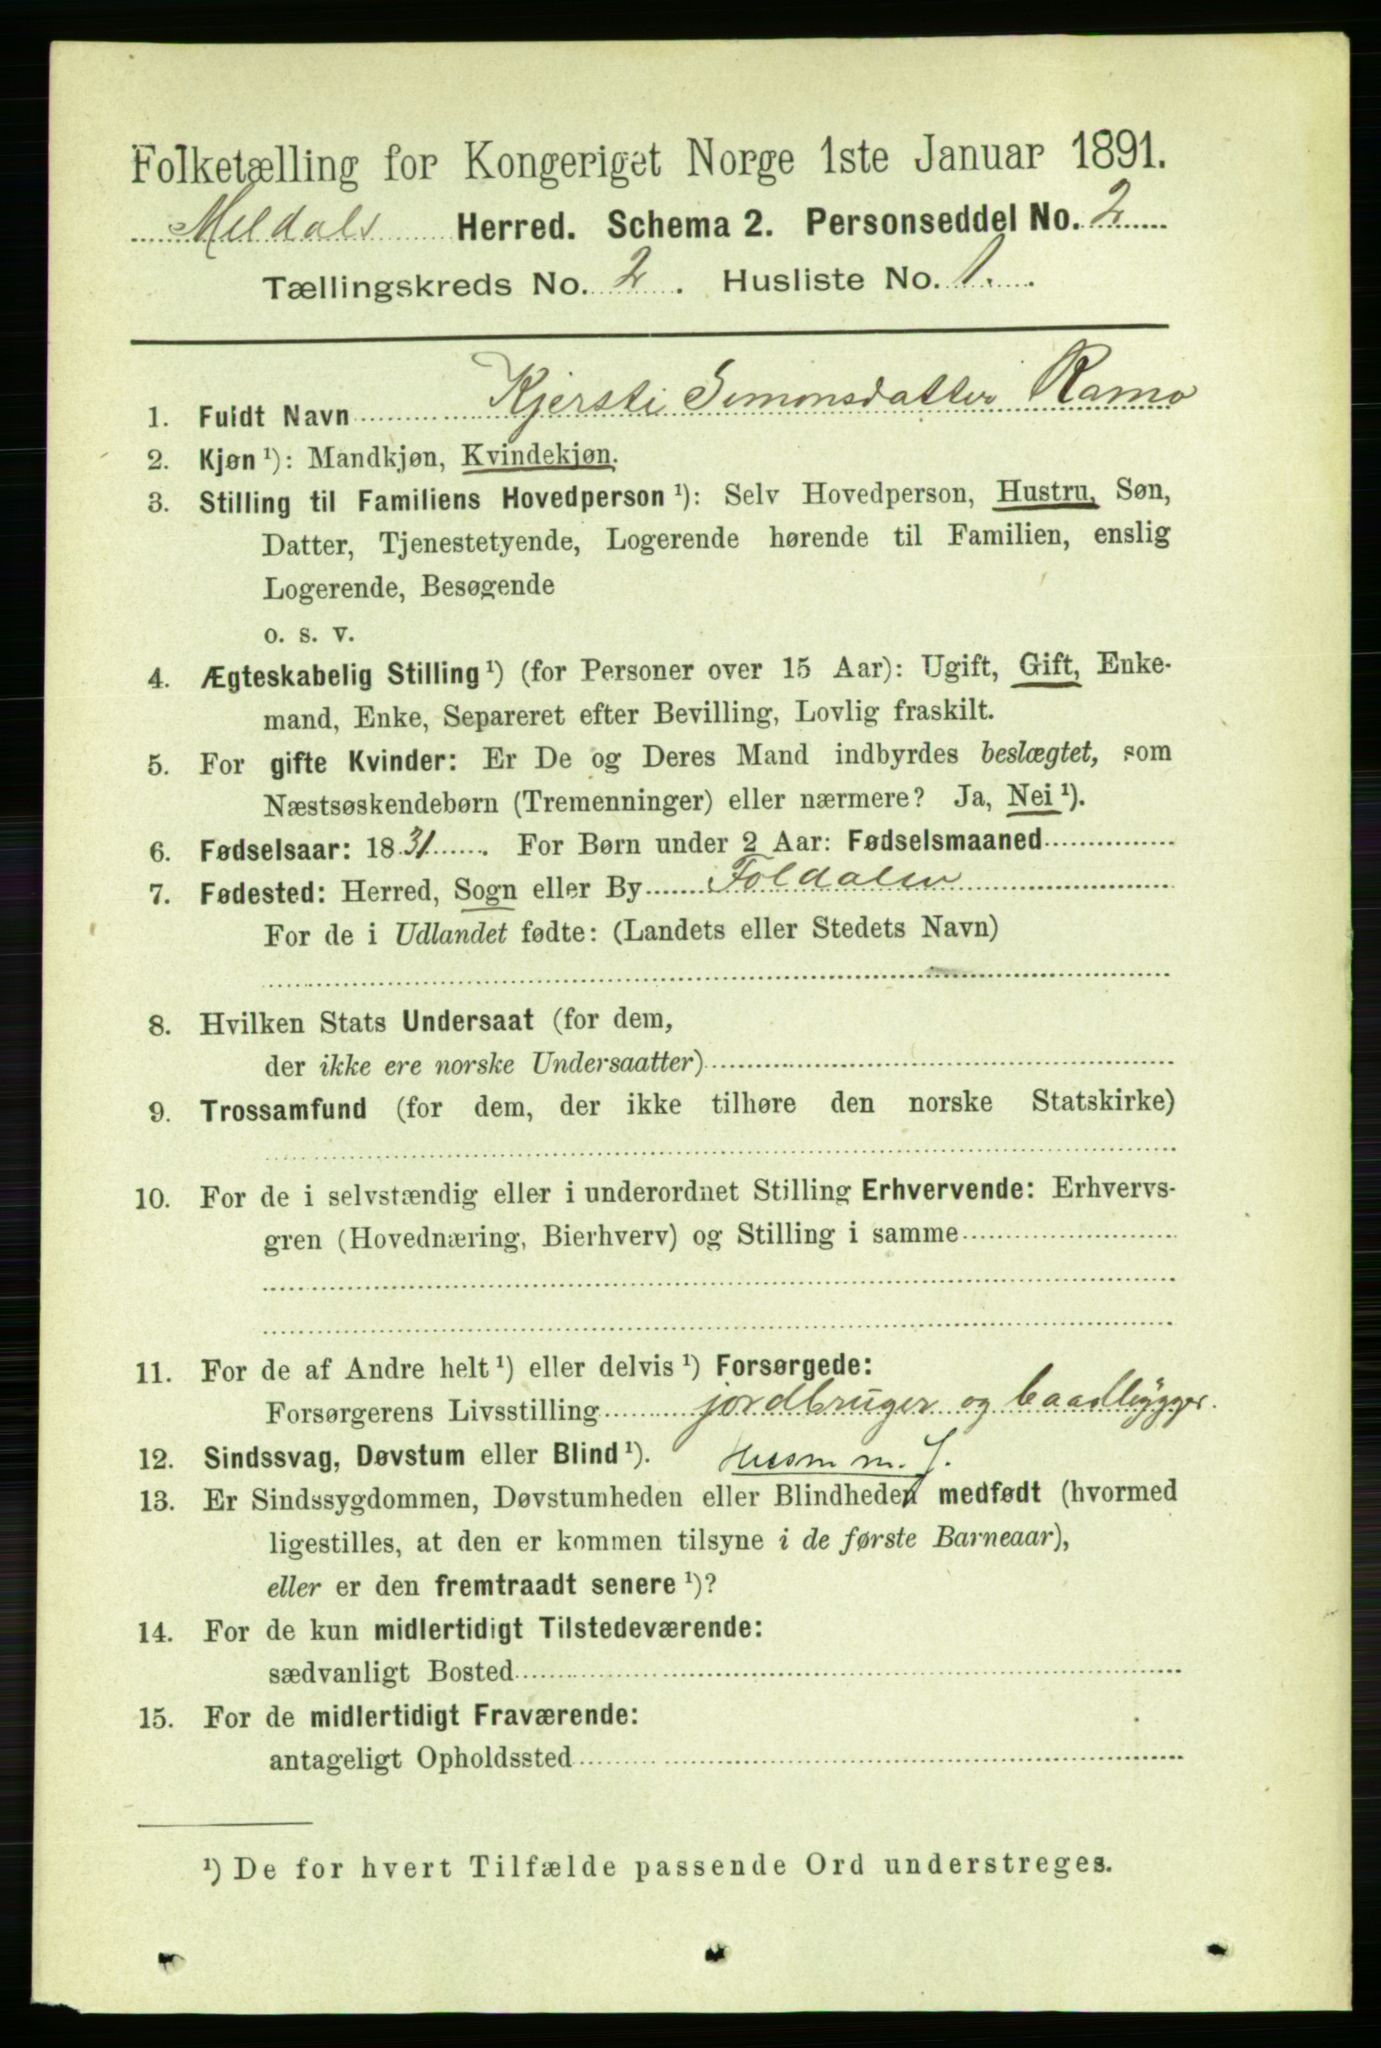 Folketælling for Kongeriget Norge 1ste Januar 1891.
Meldals Herred. Schema 2. Personseddel No. 2
Tællingskreds No. 2. Husliste No. 1.
1. Fuldt Navn Kjersti Simonsdatter Ramo
2. Kjøn ¹): Mandkjøn, Kvindekjøn.
3. Stilling til Familiens Hovedperson ¹): Selv Hovedperson, Hustru, Søn,
Datter, Tjenestetyende, Logerende hørende til Familien, enslig
Logerende, Besøgende
o. s. v.
4. Ægteskabelig Stilling ¹) (for Personer over 15 Aar): Ugift, Gift, Enke-
mand, Enke, Separeret efter Bevilling, Lovlig fraskilt.
5. For gifte Kvinder: Er De og Deres Mand indbyrdes beslægtet, som
Næstsøskendebørn (Tremenninger) eller nærmere? Ja, Nei ¹).
6. Fødselsaar: 1831. For Børn under 2 Aar: Fødselsmaaned
7. Fødested: Herred, Sogn eller By Foldalen
For de i Udlandet fødte: (Landets eller Stedets Navn)
8. Hvilken Stats Undersaat (for dem,
der ikke ere norske Undersaatter)
9. Trossamfund (for dem, der ikke tilhøre den norske Statskirke)
10. For de i selvstændig eller i underordnet Stilling Erhvervende: Erhvervs-
gren (Hovednæring, Bierhverv) og Stilling i samme
11. For de af Andre helt ¹) eller delvis ¹) Forsørgede:
Forsørgerens Livsstilling jordbruger og baadbygger.
12. Sindssvag, Døvstum eller Blind ¹). Husm m. J.
13. Er Sindssygdommen, Døvstumheden eller Blindheden medfødt (hvormed
ligestilles, at den er kommen tilsyne i de første Barneaar),
eller er den fremtraadt senere ¹)?
14. For de kun midlertidigt Tilstedeværende:
sædvanligt Bosted
15. For de midlertidigt Fraværende:
antageligt Opholdssted
¹) De for hvert Tilfælde passende Ord understreges.